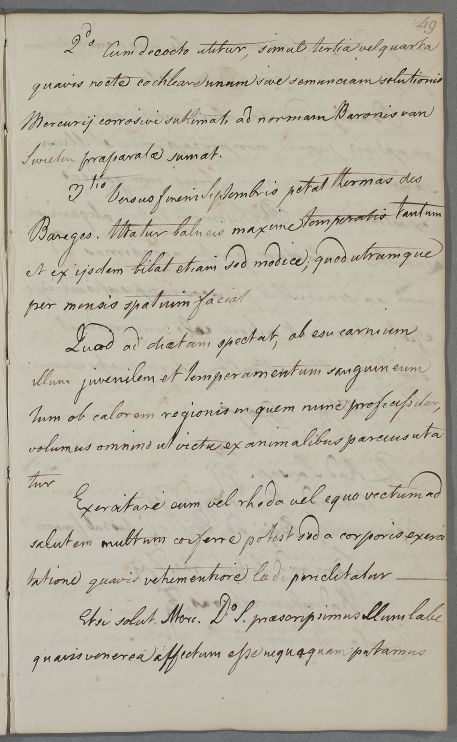 49
2do Cum decocto utitur, simul tertia vel quarta
quavis nocte cochleare unum sive semunciam solutionis
Mercurij corrosivi sublimati ad normam Baronis van
Swieten praparatæ sumat.
3tio Versus finem Septembris petat thermas des
Bareges. Utatur balneis maxime temperatis tantum
et ex ijsdem bibat etiam sed modice; quod utrumque
per mensis spatium faciat
Quod ad diætam spectat, ab esu carnium
illum juvenilem et temperamentum sanguineum
tum ob calorem regionis in quem nunc proficiscitur,
volumus omnino ut victu ex animalibus parcius uta
tur
Exercitare eum vel rheda vel equo vectum ad
salutem multum conferre potest sed a corporis exerci
tatione quavis vehementiore lædi periclitatur
Etsi solut. Merc. Do S. præscripsimus illum labe
quavis venerea affectum esse nequaquam putamus